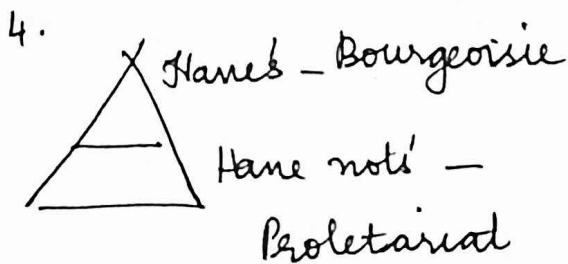 4.
Have's - Bourgeoisie
Have nots' -
Proletariat